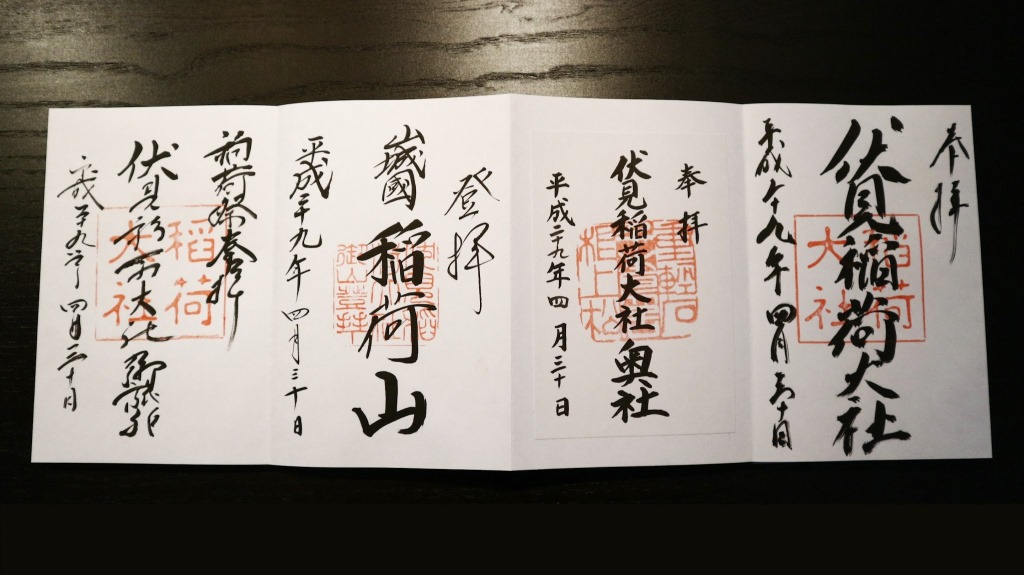 奉拝
伏見稲荷大社
平成二十九年四月三十日
稲荷
大社
奉拝
伏見稲荷大社奥社
平成二十九年四月三十日
登拝
山城國稲荷山
平成二十九年四月三十日
稲荷祭奉拝
伏見稲荷大社御旅所
平成二十九年四月三十日
稲荷
大社